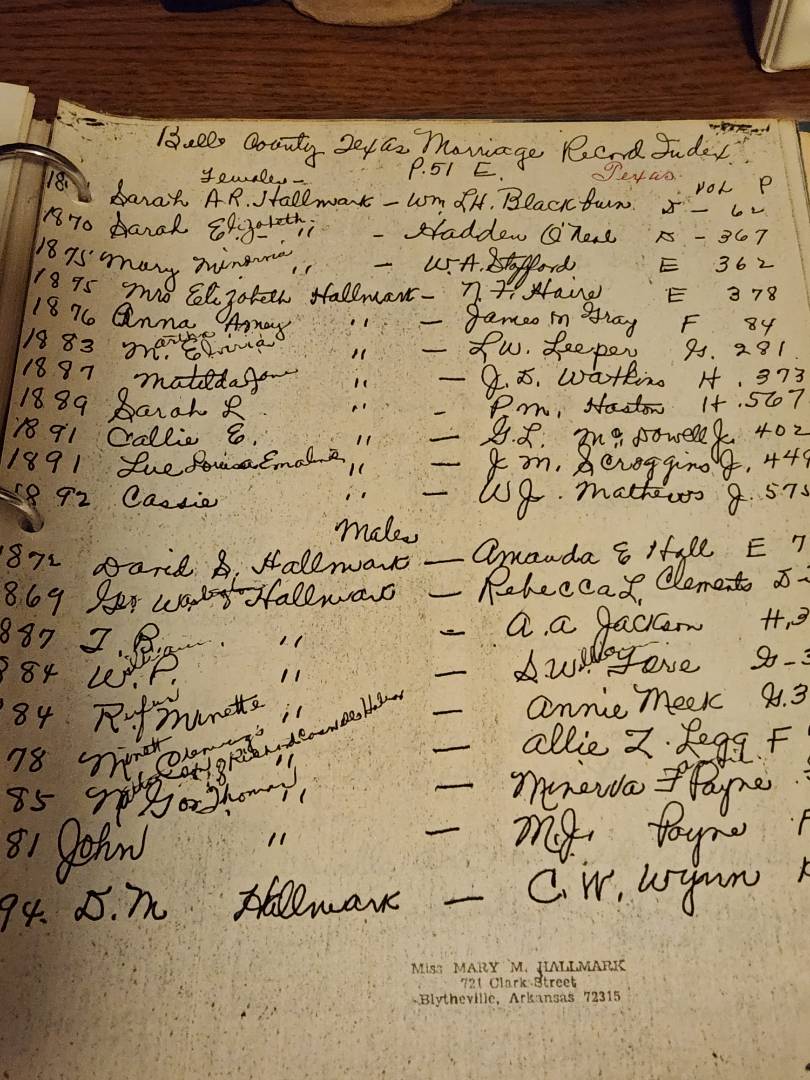 Bell County Texas Marriage Record Index
Females - P. 51 E. Texas
18 Sarah A.R. Hallmark - Wm L.H. Blackburn D - 62 Vol P
1870 Sarah Elizabeth " - Hadden O'Neal D - 367
1875 Mary Minervia " - W.A. Stafford E 362
1875 Mrs Elizabeth Hallmark - N. F. Haire E 378
1876 Anna Amey " - James M Gray F 84
1883 M. Martha Elviria " - L.W. Leeper G. 281
1887 Matilda Jane " - J.D. Watkins H . 373
1889 Sarah L. " - P.M. Haston H . 567
1891 Callie E. " - G.L. McDowell J. 402
1891 Lue Louisa Emaline " - J.M. Scroggins J. 449
1892 Cassie " - W.J. Mathews J. 575
Males
1872 David S. Hallmark - Amanda E Hall E 7
869 Geo Washington Hallmark - Rebecca L. Clements D-
887 T. B. " - A.A Jackson H, 3
84 W. P. William " - S.W. Fore G - 3
84 Rufus Minette " - Annie Meek G. 3
78 Minett Clemings " - Allie Z. Legg F
85 Geo Thomas " - Minerva F Payne
81 John " - M.J. Payne F
94. D.M Hallmark - C.W. Wynn K
Miss MARY M. HALLMARK
721 Clark Street
Blytheville, Arkansas 72315